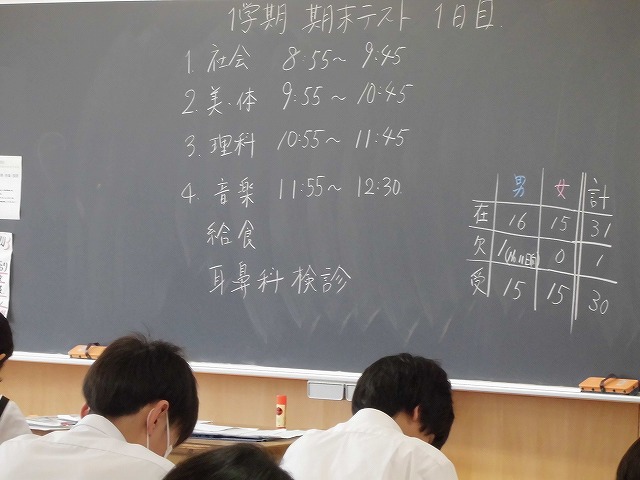 1学期 期末テスト 1日目
1. 社会 8:55～ 9:45
2. 美・体 9:55～ 10:45
3. 理科 10:55～ 11:45
4. 音楽 11:55～ 12:30
給食
耳鼻科検診
男 女 計
在 16 15 31
欠 1 0 1
受 15 15 30